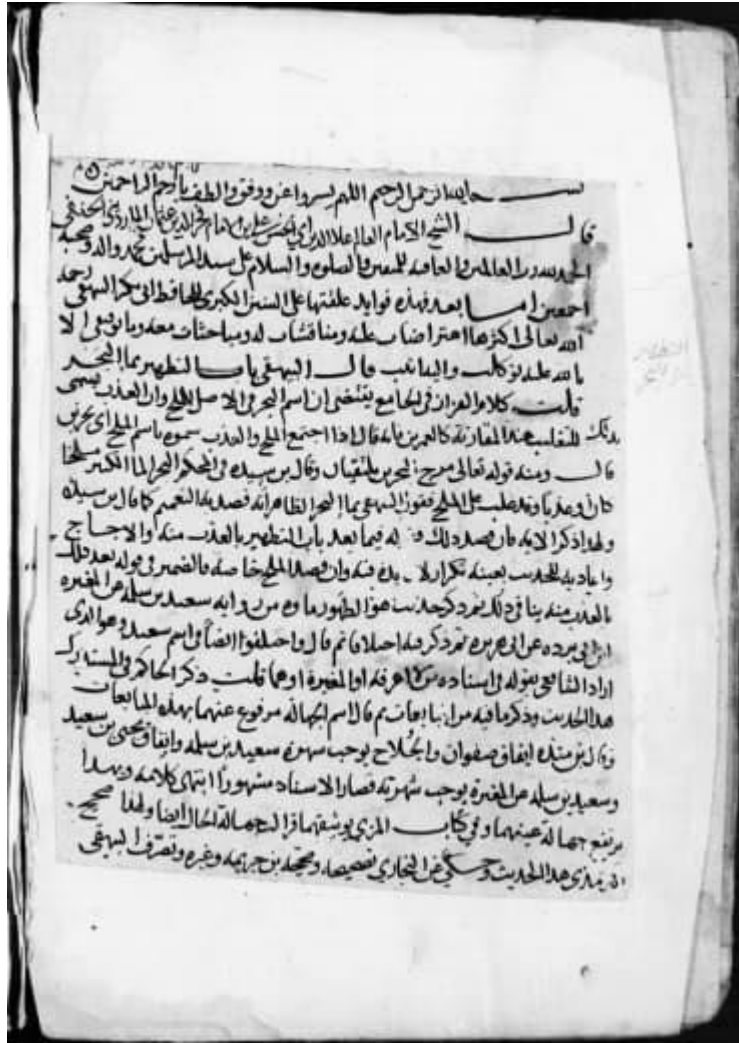 بسم الله الرحمن الرحيم اللهم يسر واعن ووفق والطف يا ارحم الراحمين
قال الشيخ الامام العالم علا الدين ابي الحسن علي بن الامام فخر الدين عثمان المارديني الحنفي
الحمد لله رب العالمين والعاقبة للمتقين والصلوه والسلام على سيد المرسلين محمد واله وصحبه
اجمعين اما بعد فهذه فوايد علقتها على السنن الكبرى للحافظ ابي بكر البيهقي رحمه
الله تعالى اكثرها اعتراضات عليه ومناقشات له ومباحثات معه وما توفيقي الا
بالله عليه توكلت واليه انيب قال البيهقي باب التطهير بما البحر
قلت كلام القزاز في الجامع يقتضي ان اسم البحر في الاصل للملح وان العذب يسمى
بذلك للتغليب عند المقارنة كالعمرين فانه قال اذا اجتمع الملح والعذب سموه باسم الملح اي بحرين
قال ومنه قوله تعالى مرج البحرين يلتقيان وقال بن سيده في المحكم البحر الما الكثير ملحا
كان او عذبا وقد غلب على الملح فقول البيهقي بما البحر الظاهر انه قصد به التعميم كما قال بن سيده
ولهذا ذكر الاية فان قصد ذلك فقوله فيما بعد باب التطهير بالعذب منه والاجاج
واعادته للحديث بعينه تكرار لا فايدة فيه وان قصد الملح خاصة فالضمير في قوله بعد ذلك
بالعذب منه ينافي ذلك ثم ذكر حديث هو الطهور ماوه من رواية سعيد بن سلمه عن المغيرة
ابن ابي بردة عن ابي هريرة ثم ذكر فيه اختلافا ثم قال واختلفوا ايضا في اسم سعيد وهو الذي
اراد الشافعي بقوله في اسناده من لا اعرفه او المغيرة او هما قلت ذكر الحاكم في المستدرك
هذا الحديث وذكر ما فيه من المتابعات ثم قال اسم الجهالة مرفوع عنهما بهذه المتابعات
وقال بن منده اتفاق صفوان والجلاح يوجب شهرة سعيد بن سلمه واتفاق يحيى بن سعيد
وسعيد بن سلمه عن المغيرة يوجب شهرته فصار الاسناد مشهورا انتهى كلامه وبهذا
يرتفع جهالة عينهما وفي كتاب المزي توثيقهما فزالت جهالة الحال ايضا ولهذا صحح
الترمذي هذا الحديث وحكي عن البخاري تصحيحه وصححه بن خزيمة وغيره وتصرف البيهقي